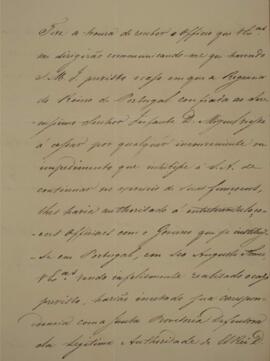 Tive a honra de receber o Officio que V. Ex.as
me dirigirão communicando-me que havendo
S. M. I. previsto o caso em que a Regencia
do Reino de Portugal confiada ao Sere-
nissimo Senhor Infante D. Miguel
a cessar por qualquer inconveniente ou
impedimento que a S. A. de
continuar no exercicio de suas funcções,
lhes havia authorisado a
Officiaes com o Governo que se
se em Portugal, em seo Augusto Nome
V. Ex.as vendo infelizmente realisado o caso
previsto, havião encetado sua correspon-
dencia com a Junta Provisoria
da Legitima Authoridade de El Rei D.